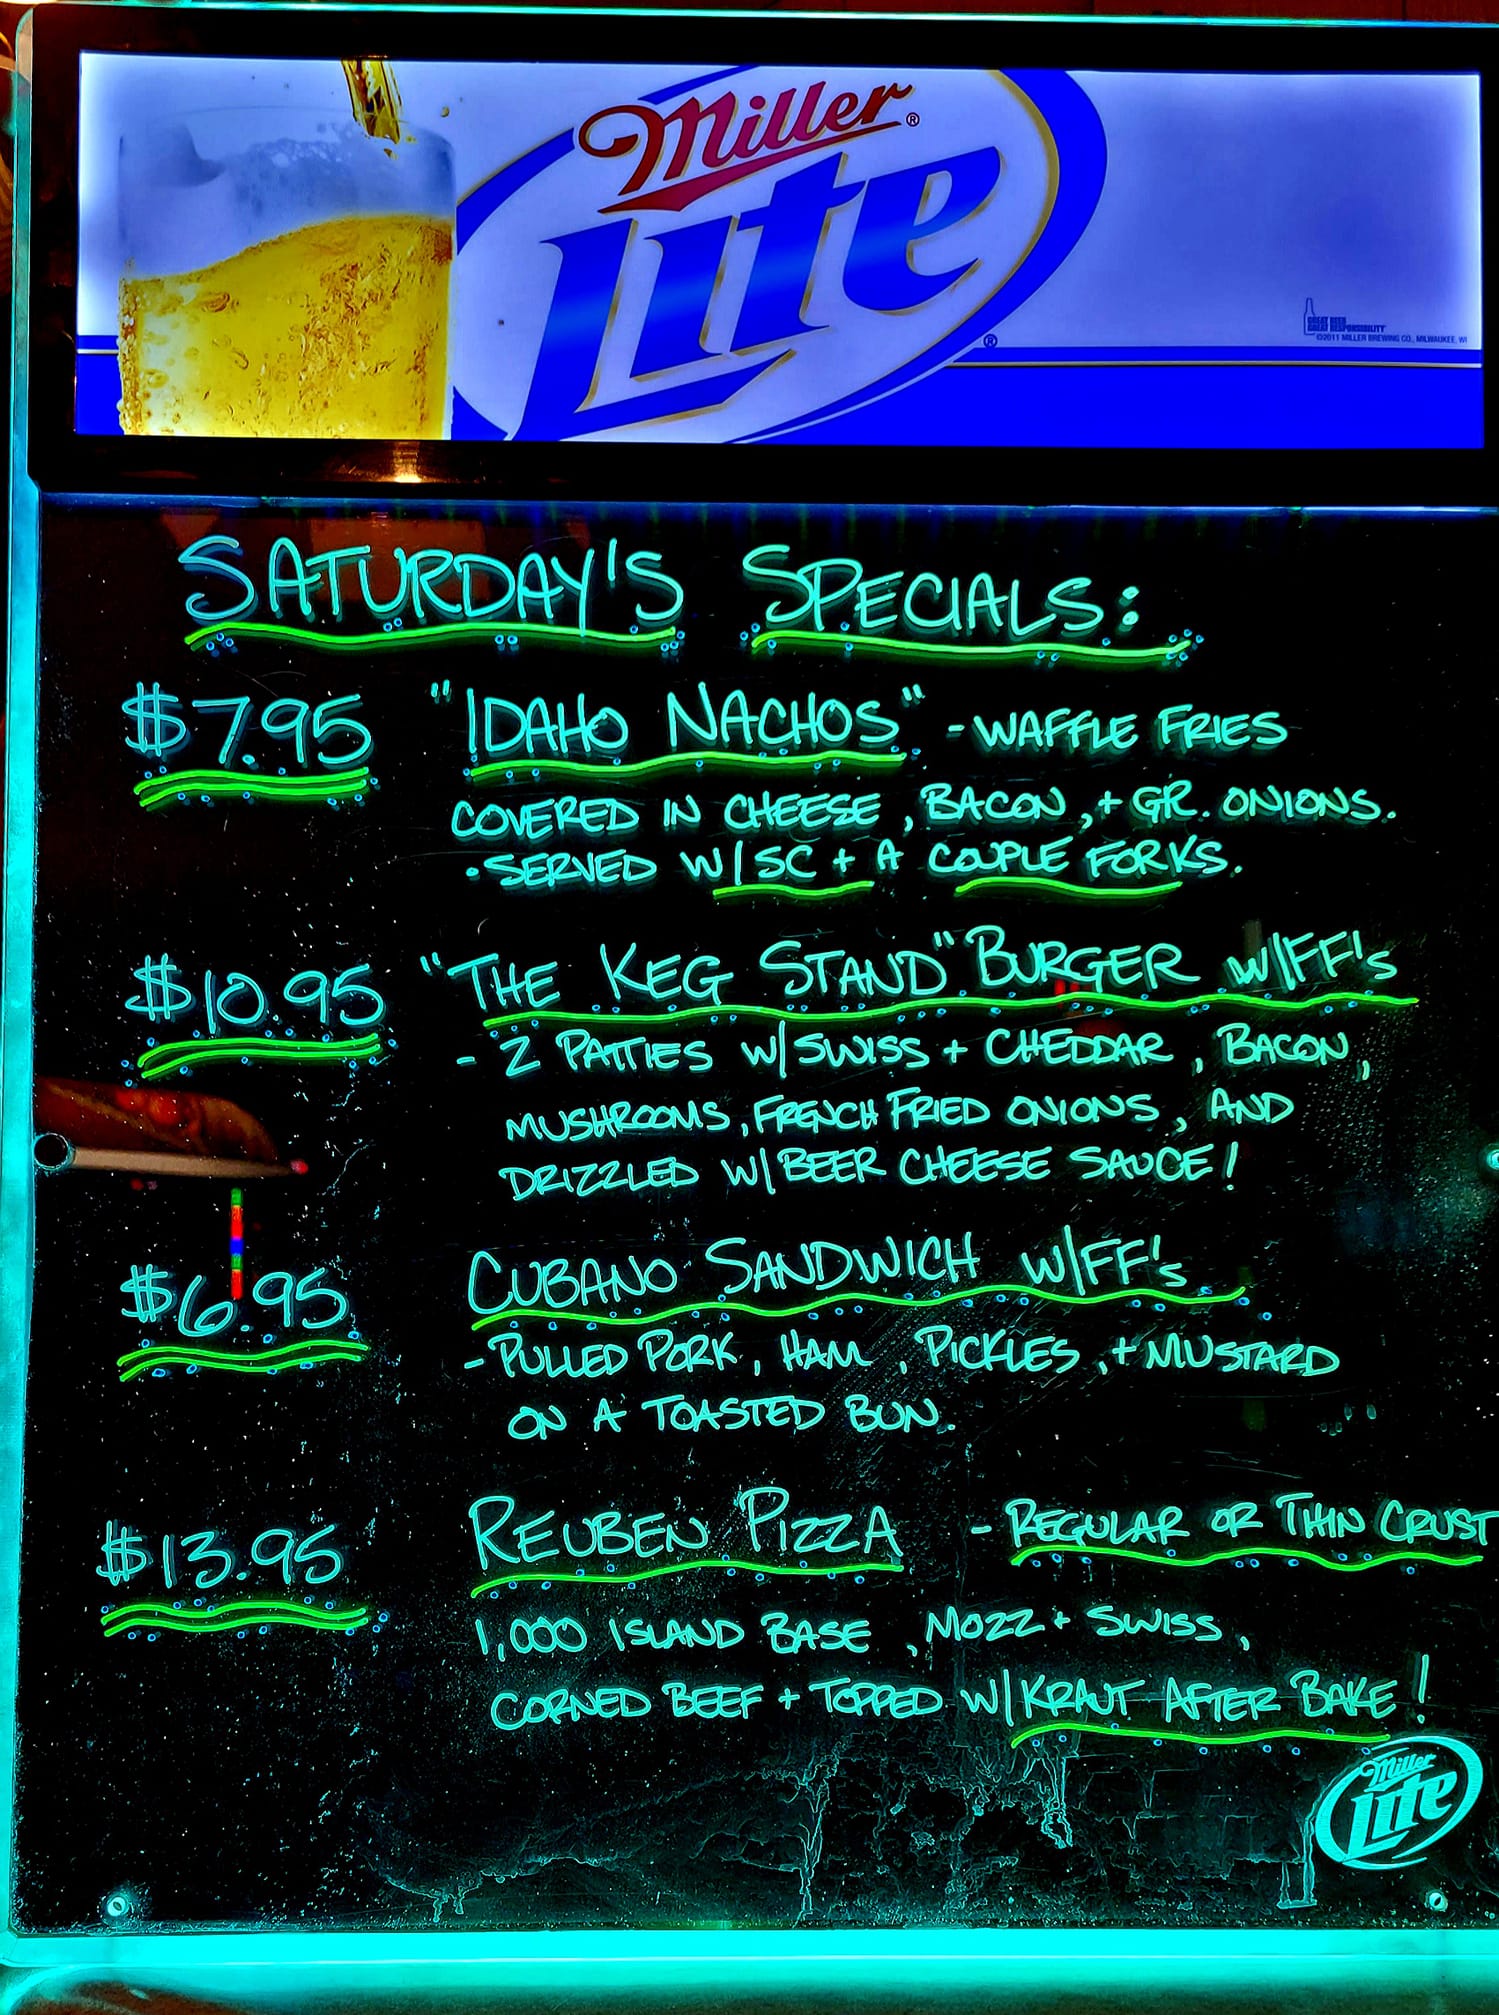 Miller®
Lite®
GREAT BEER
GREAT RESPONSIBILITY
©2011 MILLER BREWING CO., MILWAUKEE, WI
SATURDAY'S SPECIALS:
$7.95 "IDAHO NACHOS" - WAFFLE FRIES
COVERED IN CHEESE, BACON, + GR. ONIONS.
• SERVED W/SC + A COUPLE FORKS.
$10.95 "THE KEG STAND" BURGER W/FF's
- 2 PATTIES W/SWISS + CHEDDAR, BACON,
MUSHROOMS, FRENCH FRIED ONIONS, AND
DRIZZLED W/BEER CHEESE SAUCE!
$6.95 CUBANO SANDWICH W/FF's
- PULLED PORK, HAM, PICKLES, + MUSTARD
ON A TOASTED BUN.
$13.95 REUBEN PIZZA - REGULAR OR THIN CRUST
1,000 ISLAND BASE, MOZZ + SWISS,
CORNED BEEF + TOPPED W/KRAUT AFTER BAKE!
Miller
Lite